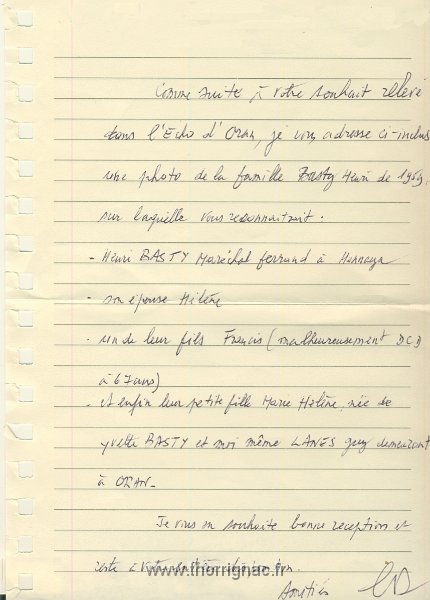 Comme suite à votre souhait relevé
dans l'Echo d'Oran, je vous adresse ci-inclus
une photo de la famille Basty Henri de 1959,
sur laquelle vous reconnaitront :
- Henri BASTY Maréchal ferrand à Hennaya
- son épouse Hélène
- un de leur fils Francis (malheureusement DCD
à 67 ans)
- et enfin leur petite fille Marie Hélène, née de
yvette BASTY et moi même LANES Guy demeurant
à ORAN.
Je vous en souhaite bonne reception et
reste à votre entière disposition.
www.thorrignac.fr
Amitiés